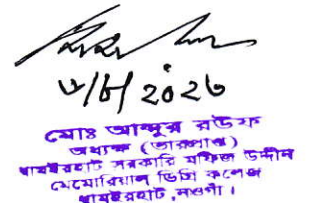 ৩/৮/২০২৩
মোঃ আব্দুর রউফ
অধ্যক্ষ (ভারপ্রাপ্ত)
ধামইরহাট সরকারি মফিজ উদ্দীন
মেমোরিয়াল ডিগ্রি কলেজ
ধামইরহাট, নওগাঁ।